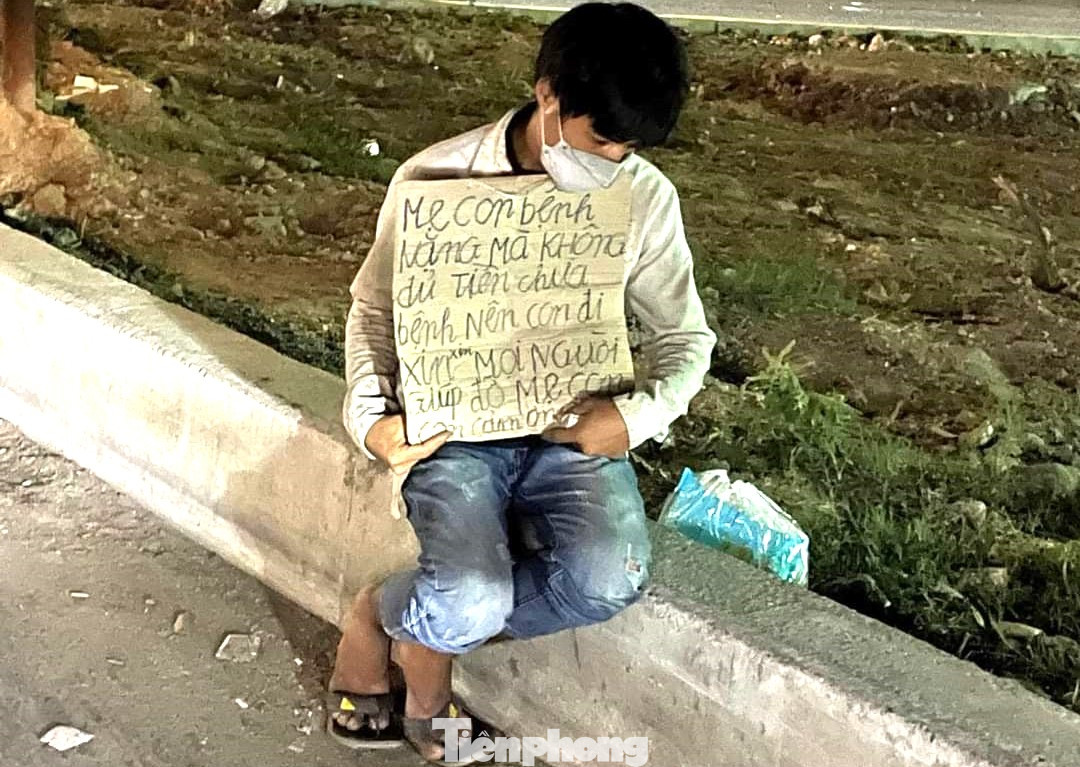 Mẹ con bệnh
nặng mà không
đủ tiền chưa
bệnh nên con đi
xin xin mọi người
giúp đỡ mẹ con
con cảm ơn
Tiênphong